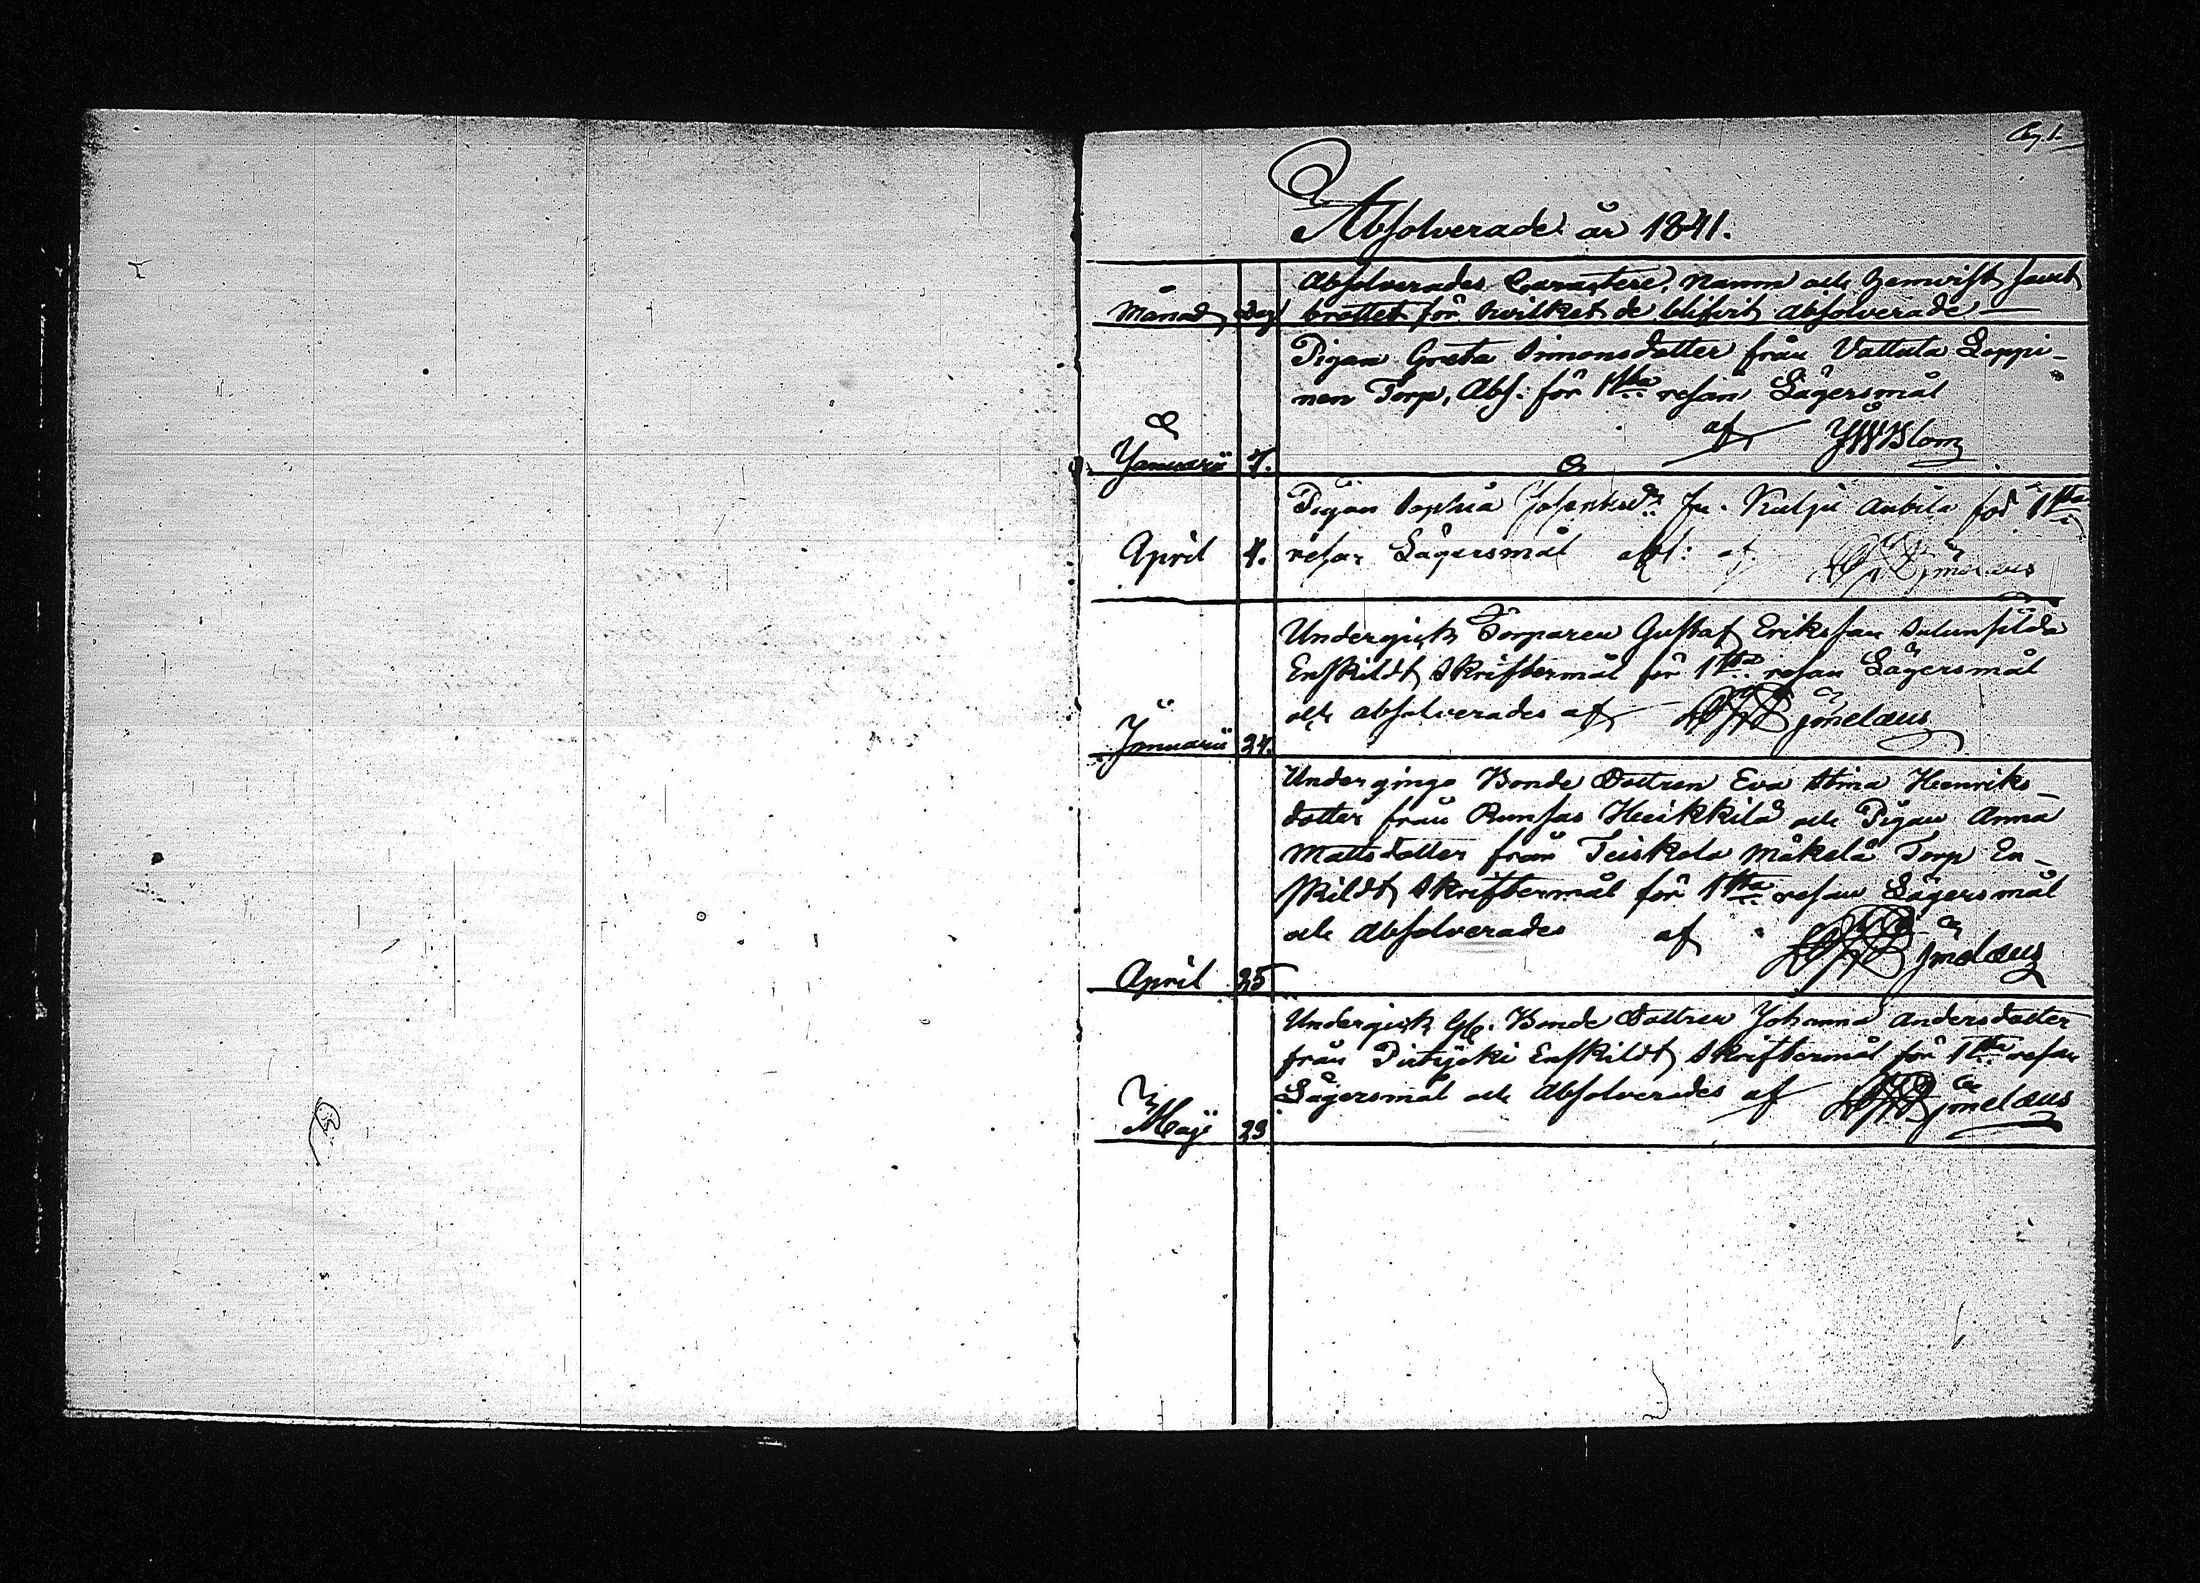 Pag. 1.
Absolverade år 1841.
Absolverades Caractere, Namn och Hemvist samt
Månad, Dag brottet för hvilket de blifvit absolverade
Pigan Greta Simonsdotter från Vattula Seppi-
nen Torp, Abs: för 1sta resan Lägersmål
af
Januarii 7.
Pigan Sophia fr. Kulju Anbila för 1sta
April 4. resan Lägersmål abs: af
Undergick Torparen Gustaf Eriksson
Enskildt Skriftermål för 1sta resan Lägersmål
och absolverades af
Januarii 24.
Undergingo Bonde Dottren Eva Stina Henriks-
dotter från Heikkilä och Pigan Anna
Mattsdotter från Teiskola Mäkelä Torp En-
skildt Skriftermål för 1sta resan Lägersmål
och Absolverades af
April 25
Undergick Bonde Dottren Johanna Andersdotter
från Enskildt Skriftermål för 1sta resan
Lägersmål och Absolverades af
Maji 23